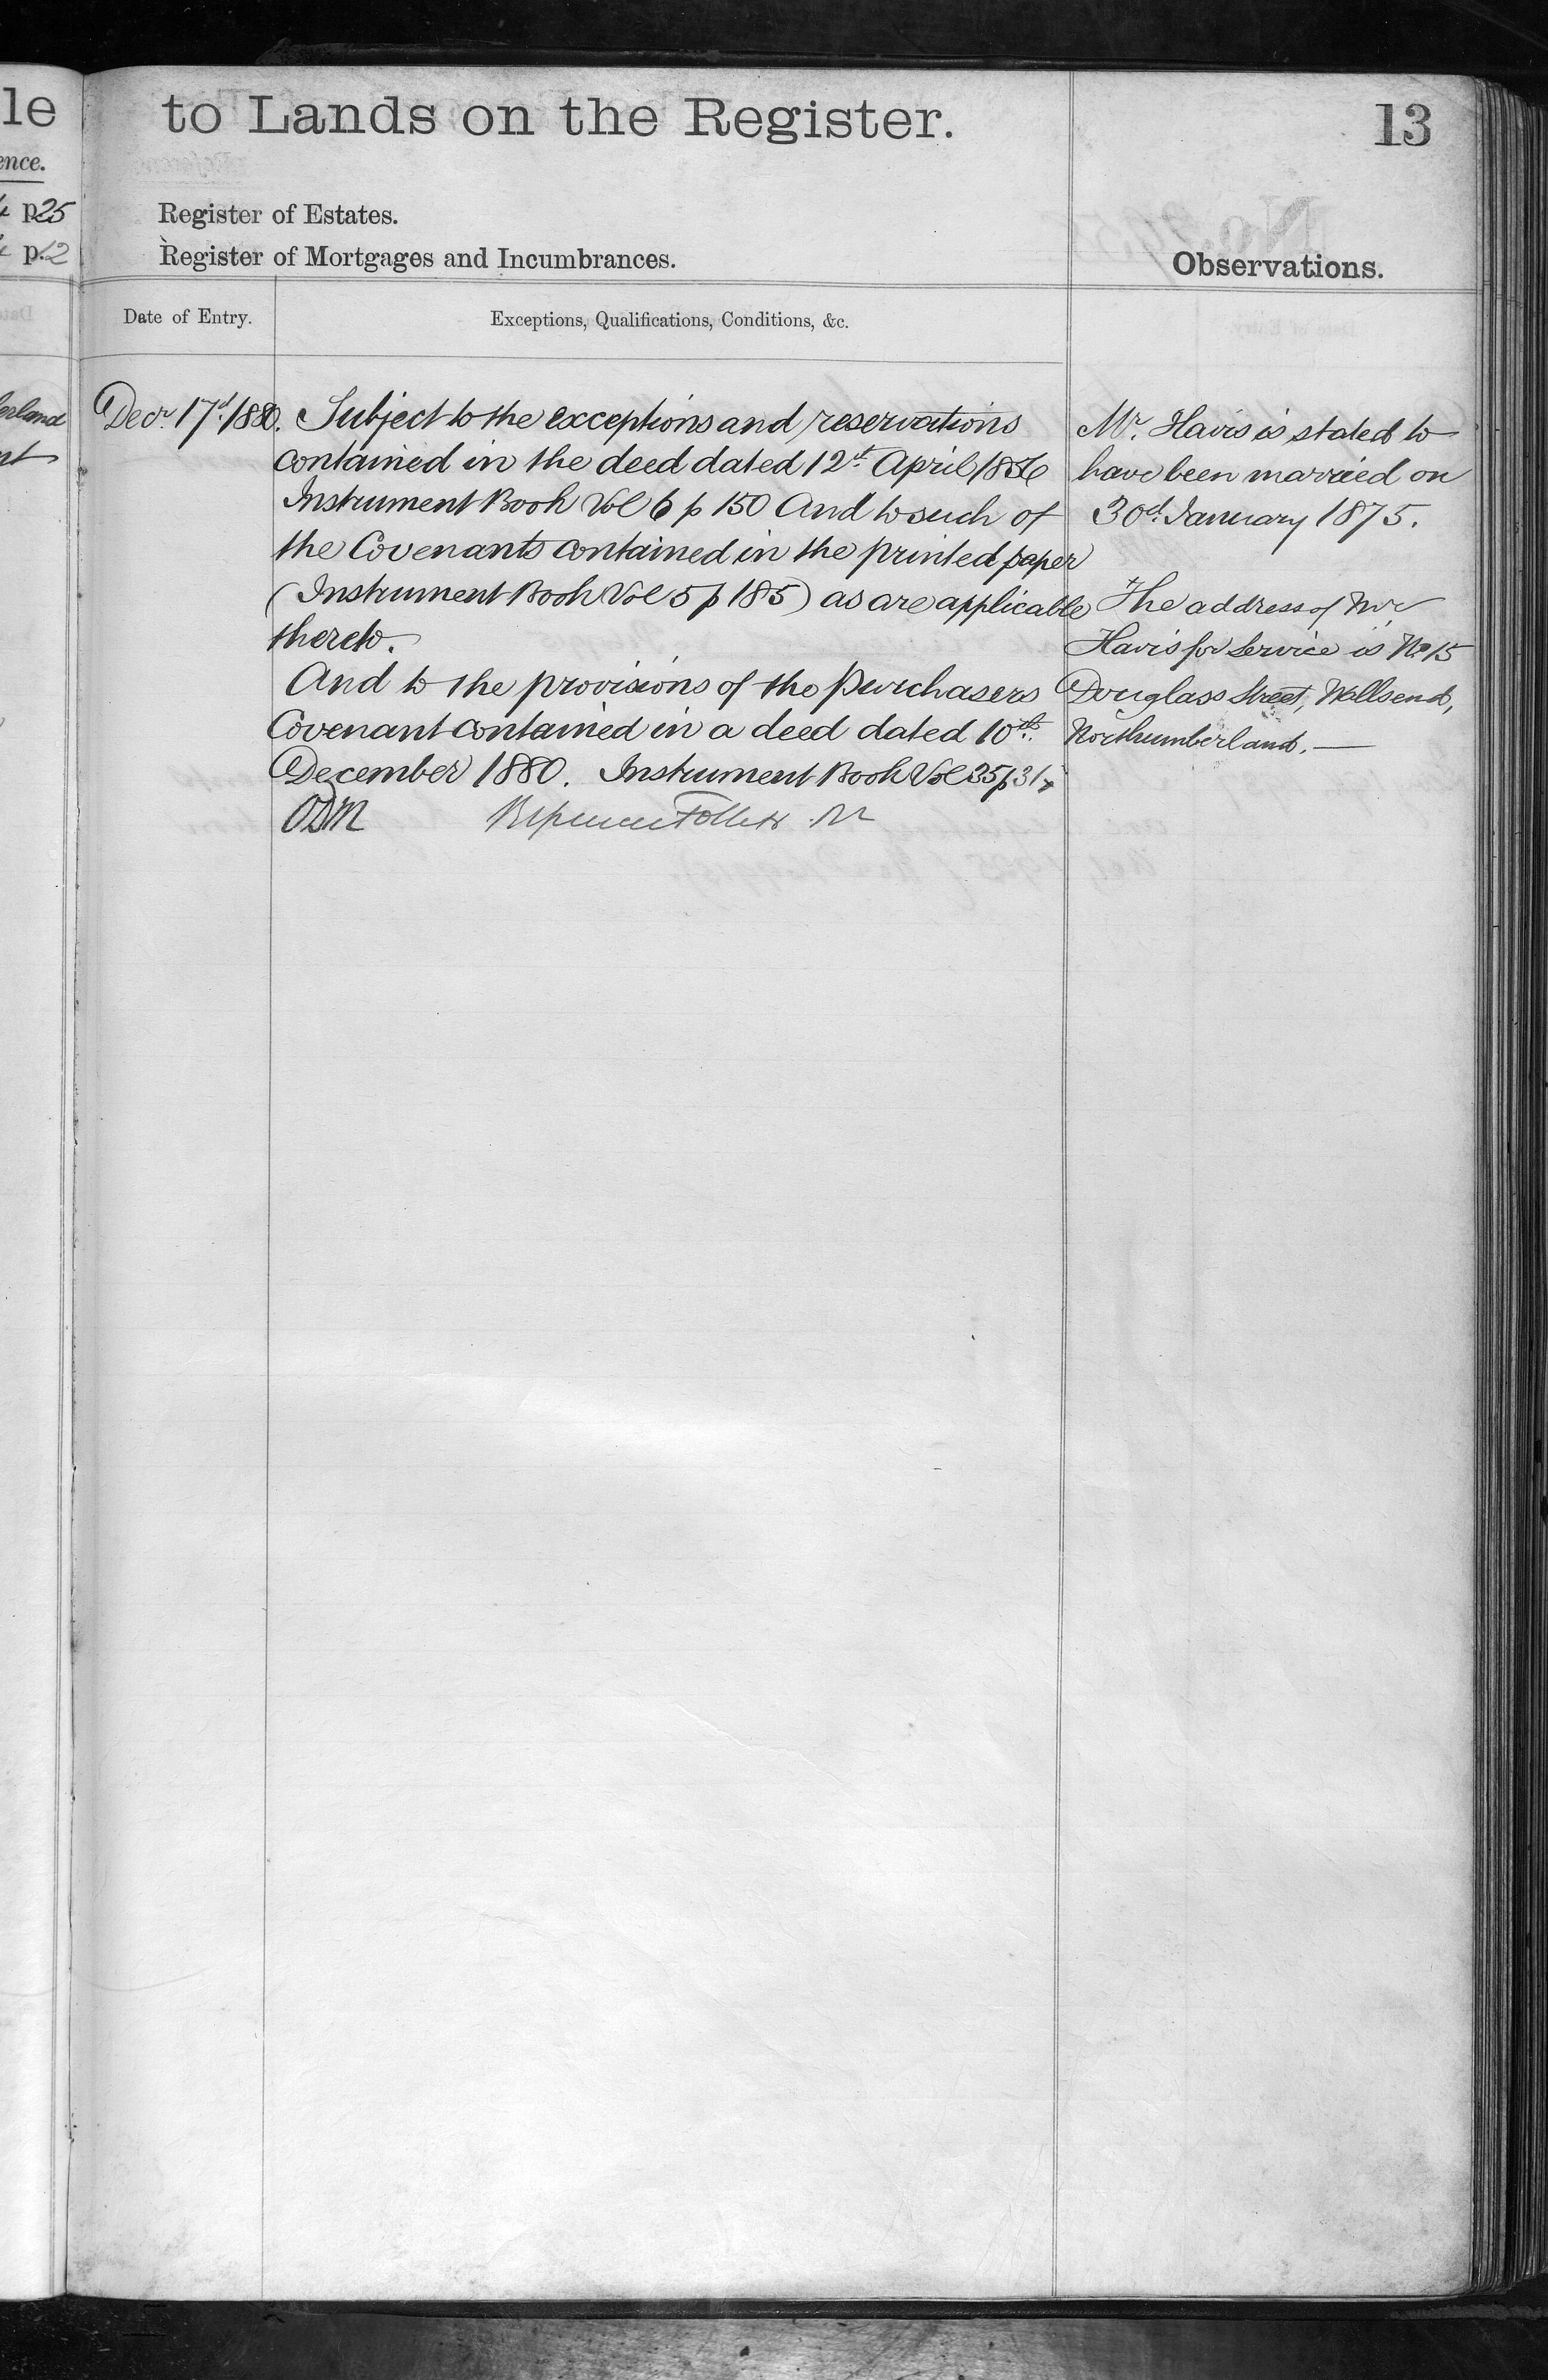 le
ence.
p 25
p. 12
erland
nt
to Lands on the Register.
13
Register of Estates.
Register of Mortgages and Incumbrances.
Observations.
Date of Entry.
Exceptions, Qualifications, Conditions, &c.
Decr. 17d. 1880.
Subject to the exceptions and reservations
contained in the deed dated 12d. April 1856
Instrument Book Vol 6 p 150 And to such of
the Covenants contained in the printed paper
(Instrument Book Vol 5 p 185) as are applicable
thereto.
And to the provisions of the purchasers
Covenant contained in a deed dated 10th.
December 1880. Instrument Book Vol 35 p 317
ODM
Mr. Havis is stated to
have been married on
30d. January 1875.
The address of Mr.
Havis for Service is No 15
Douglass Street, Wallsend,
Northumberland. —